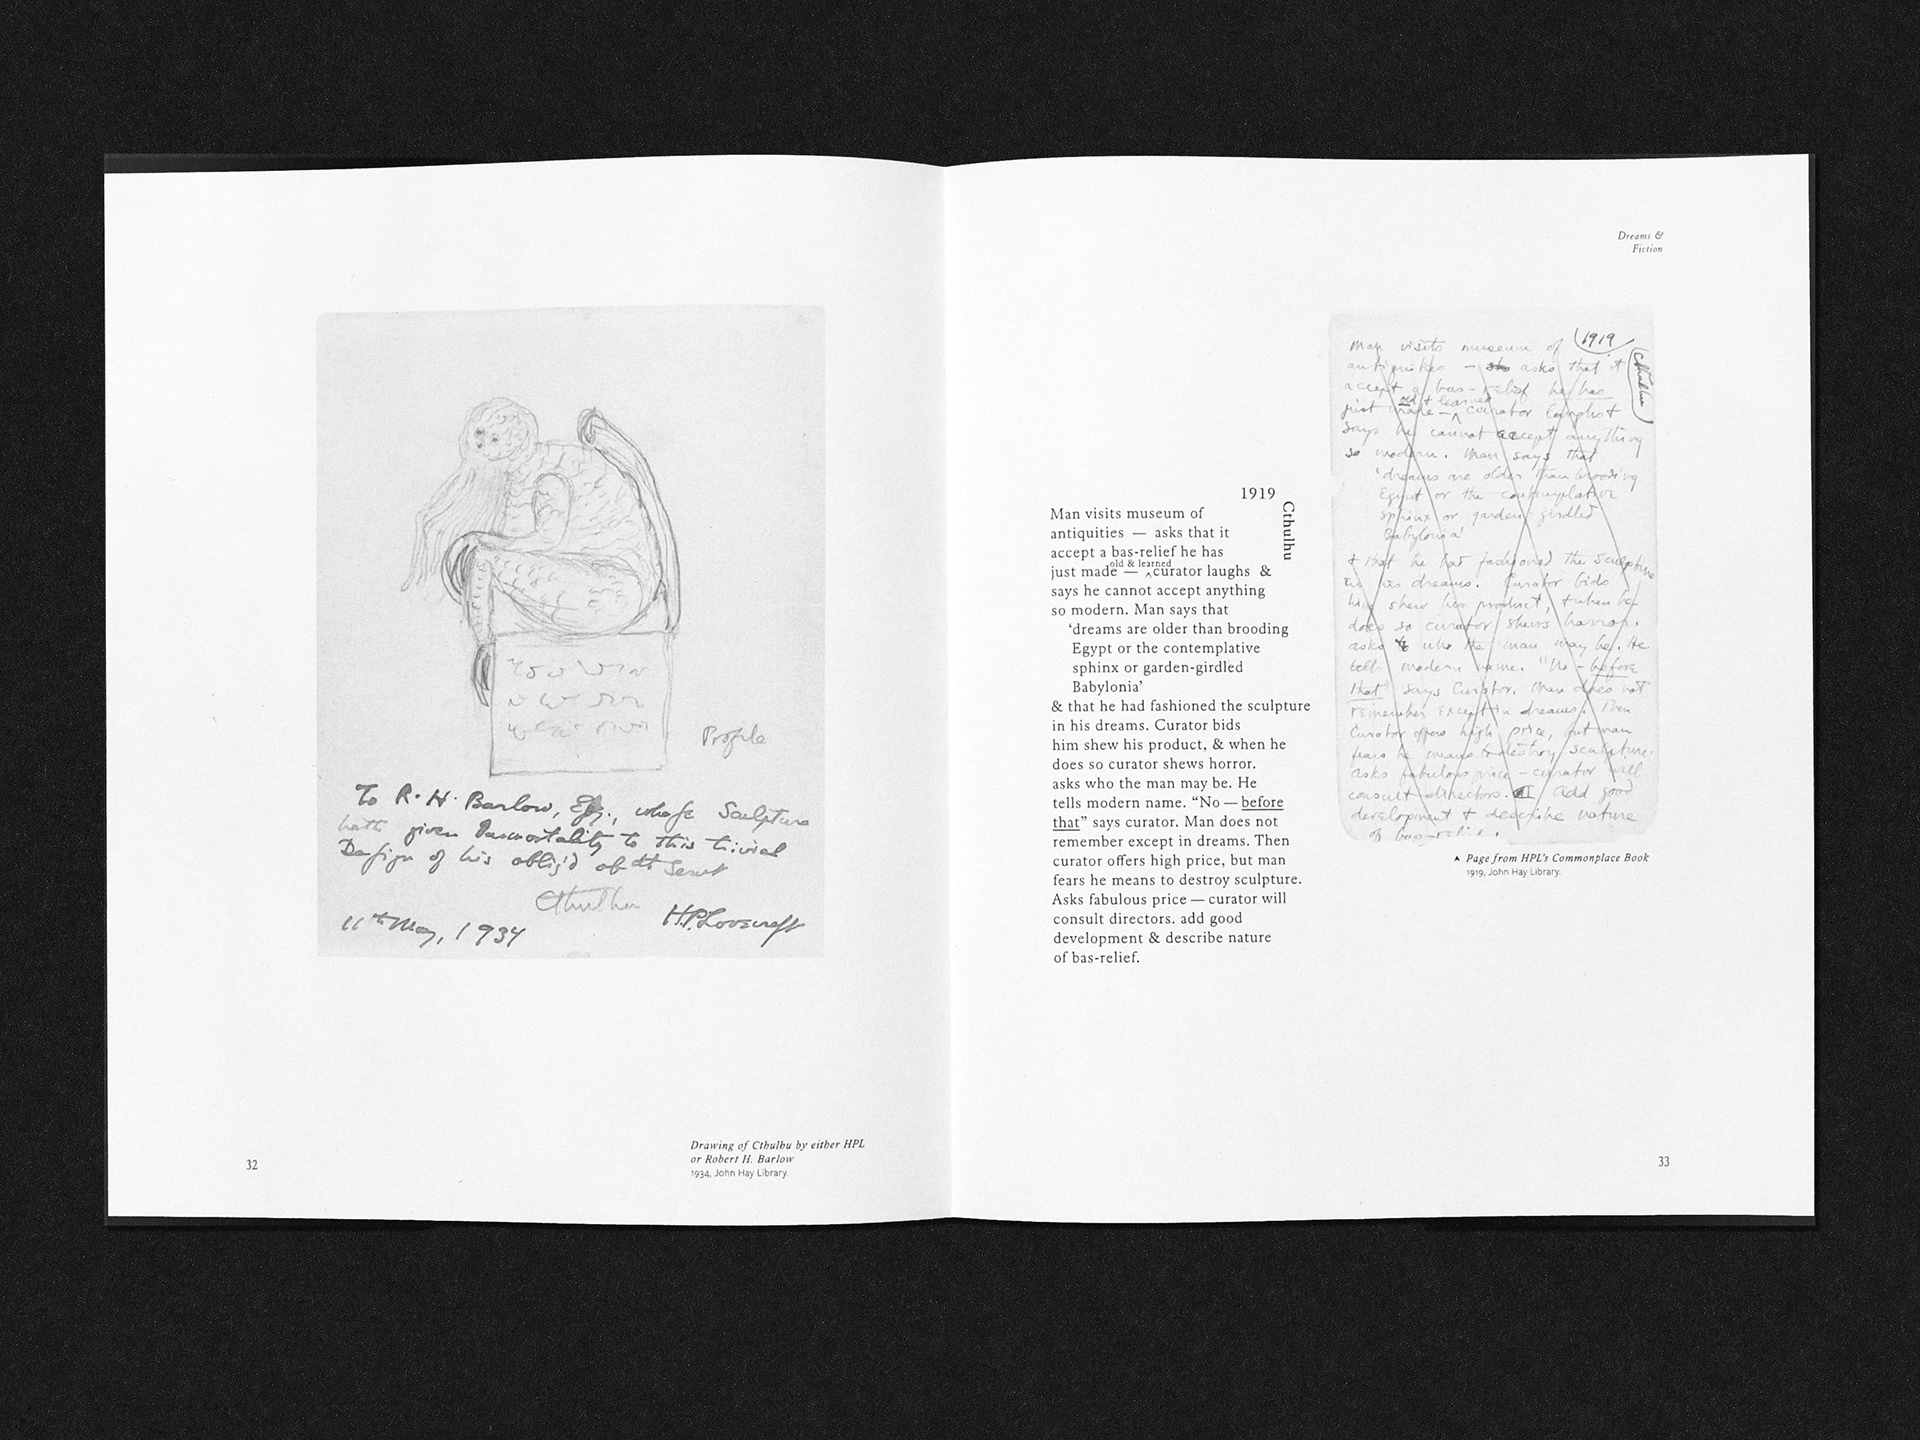 Profile
To R. H. Barlow, Esq., whose Sculpture
hath given Immortality to this trivial
Design of his oblig'd obdt Servt
Cthulhu
11th May, 1934 H.P. Lovecraft
32
Drawing of Cthulhu by either HPL
or Robert H. Barlow
1934, John Hay Library.
Dreams &
Fiction
1919
Cthulhu
Man visits museum of
antiquities — asks that it
accept a bas-relief he has
old & learned
just made — ‸curator laughs &
says he cannot accept anything
so modern. Man says that
‘dreams are older than brooding
Egypt or the contemplative
sphinx or garden-girdled
Babylonia’
& that he had fashioned the sculpture
in his dreams. Curator bids
him shew his product, & when he
does so curator shews horror.
asks who the man may be. He
tells modern name. “No — before
that” says curator. Man does not
remember except in dreams. Then
curator offers high price, but man
fears he means to destroy sculpture.
Asks fabulous price — curator will
consult directors. add good
development & describe nature
of bas-relief.
1919
Cthulhu
Man visits museum of
antiquities — asks that it
accept a bas-relief he has
old & learned
just made — ‸ curator laughs &
says he cannot accept anything
so modern. Man says that
'dreams are older than brooding
Egypt or the contemplative
sphinx or garden-girdled
Babylonia'
& that he had fashioned the sculpture
in his dreams. Curator bids
him shew his product, & when he
does so curator shews horror.
asks who the man may be. He
tells modern name. "No — before
that" says curator. Man does not
remember except in dreams. Then
curator offers high price, but man
fears he means to destroy sculpture.
asks fabulous price — curator will
consult directors. add good
development & describe nature
of bas-relief.
Page from HPL's Commonplace Book
1919, John Hay Library.
33